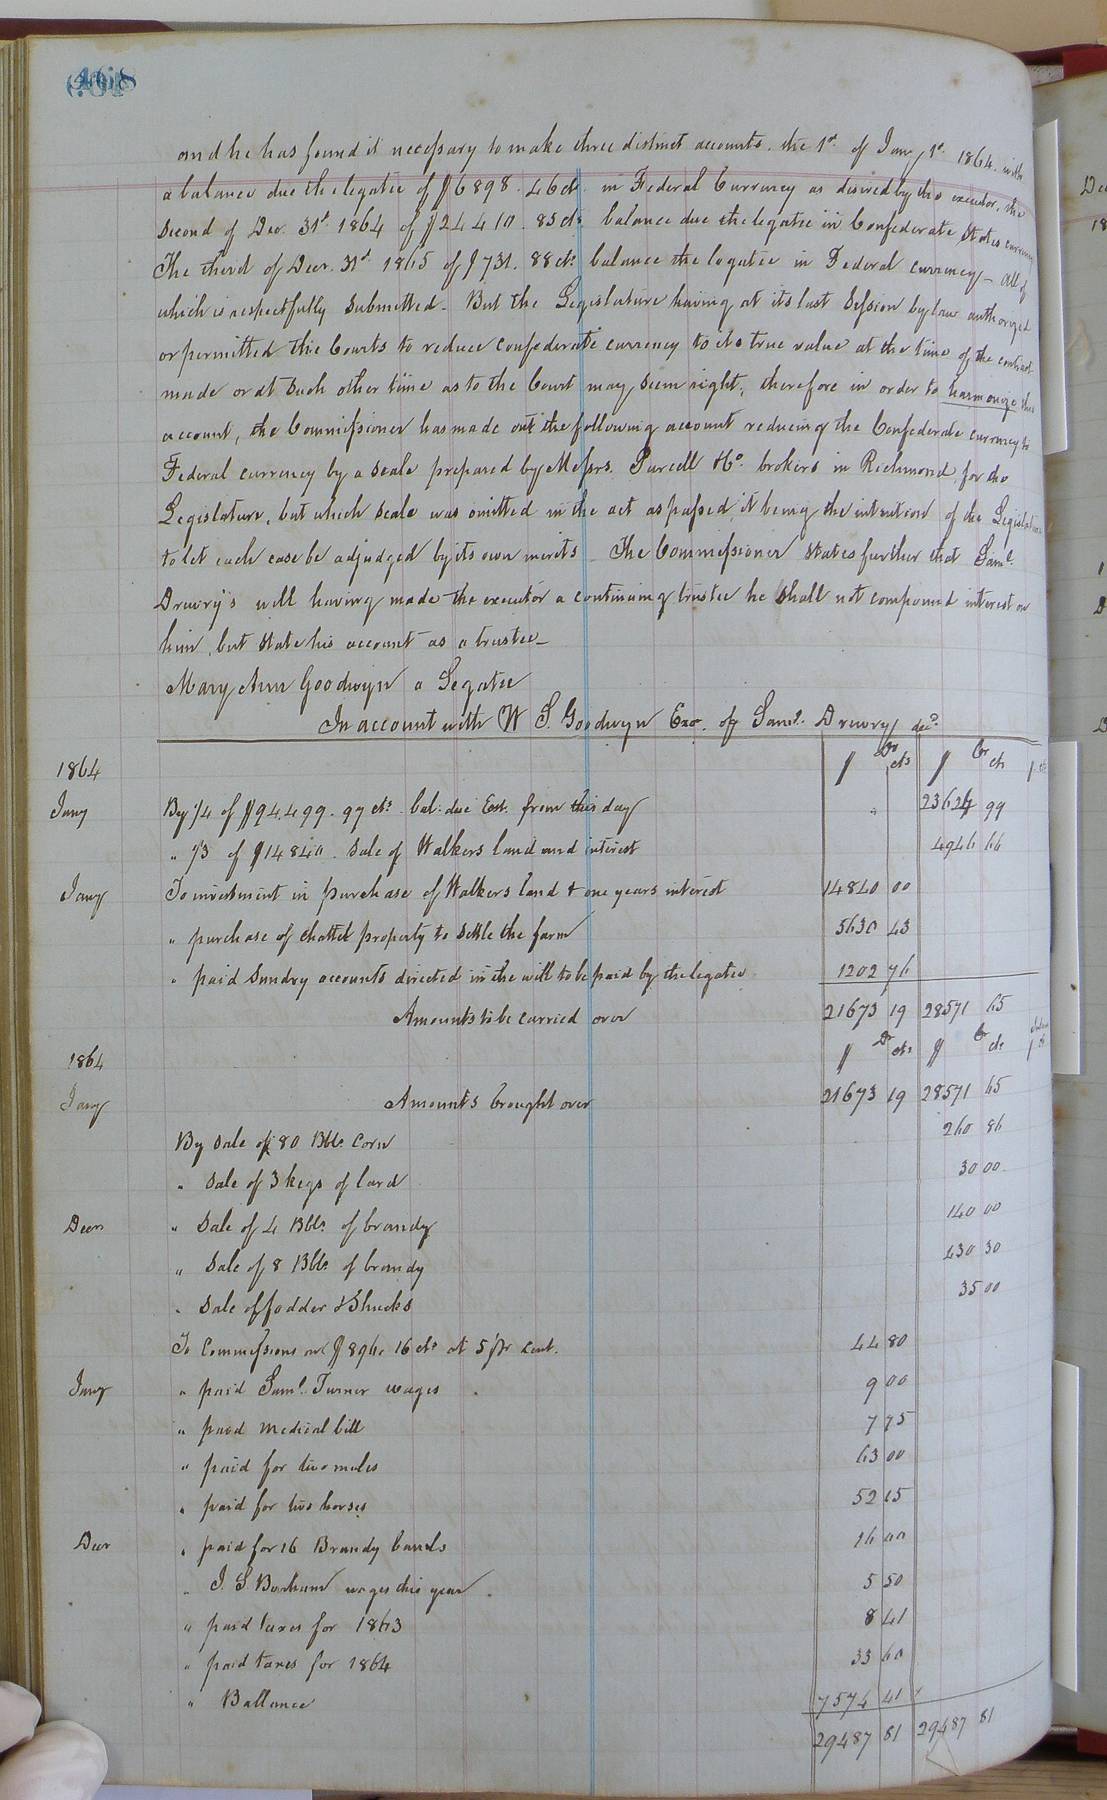 468
and he has found it necessary to make three distinct accounts. the 1st. of Jany 1st. 1864. with
a balance due the legatee of $6898.46cts. in Federal Currency as desired by the executor. the
second of Dec. 31st. 1864 of $24410.85cts balance due the legatee in Confederate States currency
The third of Decr. 31st 1865 of $731.88cts balance the legatee in Federal currency – All of
which is respectfully submitted – But the Legislature having at its last Session by law authorized
or permitted the Courts to reduce confederate currency to its true value at the time of the contract
made or at such other time as to the Court may seem right, therefore in order to harmonize this
account, the Commissioner has made out the following account reducing the Confederate currency to
Federal currency by a scale prepared by Messrs. Purcell & Co. brokers in Richmond, for the
Legislature, but which scale was omitted in the act as passed, it being the intention of the Legislature
to let each case be adjudged by its own merits The Commissioner states further that Saml.
Drewry's will having made the executor a continuing trustee he shall not compound interest on
him, but state his account as a trustee –
Mary Ann Goodwyn a Legatee
In account with W S. Goodwyn Exo. of Saml. Drewry decd.
1864 $ Dr cts $ Cr cts
Jany By 1/4 of $94.499.99 cts. bal. due Est. from this day " 23624 99
" 1/3 of $14840. sale of Walkers land and interest 4946 66
Jany To investment in purchase of Walkers land & one years interest 14840 00
" purchase of chattel property to settle the farm 5630 43
" paid Sundry accounts directed in the will to be paid by the legatee 1202 76
Amounts to be carried over 21673 19 28571 65
1864 $ Dr cts $ Cr cts
Jany Amounts brought over 21673 19 28571 65
By sale of 80 Bbls. Corn 260 86
" Sale of 3 kegs of lard 30 00
Decr " Sale of 4 Bbls. of brandy 140 00
" Sale of 8 Bbls. of brandy 430 30
" Sale of fodder & Shucks 35 00
To Commissions on $896.16 cts at 5 pr cent. 44 80
Jany " paid Saml. Turner wages 9 00
" paid medical bill 7 75
" paid for two mules 63 00
" paid for two horses 52 15
Decr " paid for 16 Brandy barrels 16 00
" J. S. Barham wages this year 5 50
" paid taxes for 1863 8 41
" paid taxes for 1864 33 60
" Ballance 7574 41
29487 81 29487 81